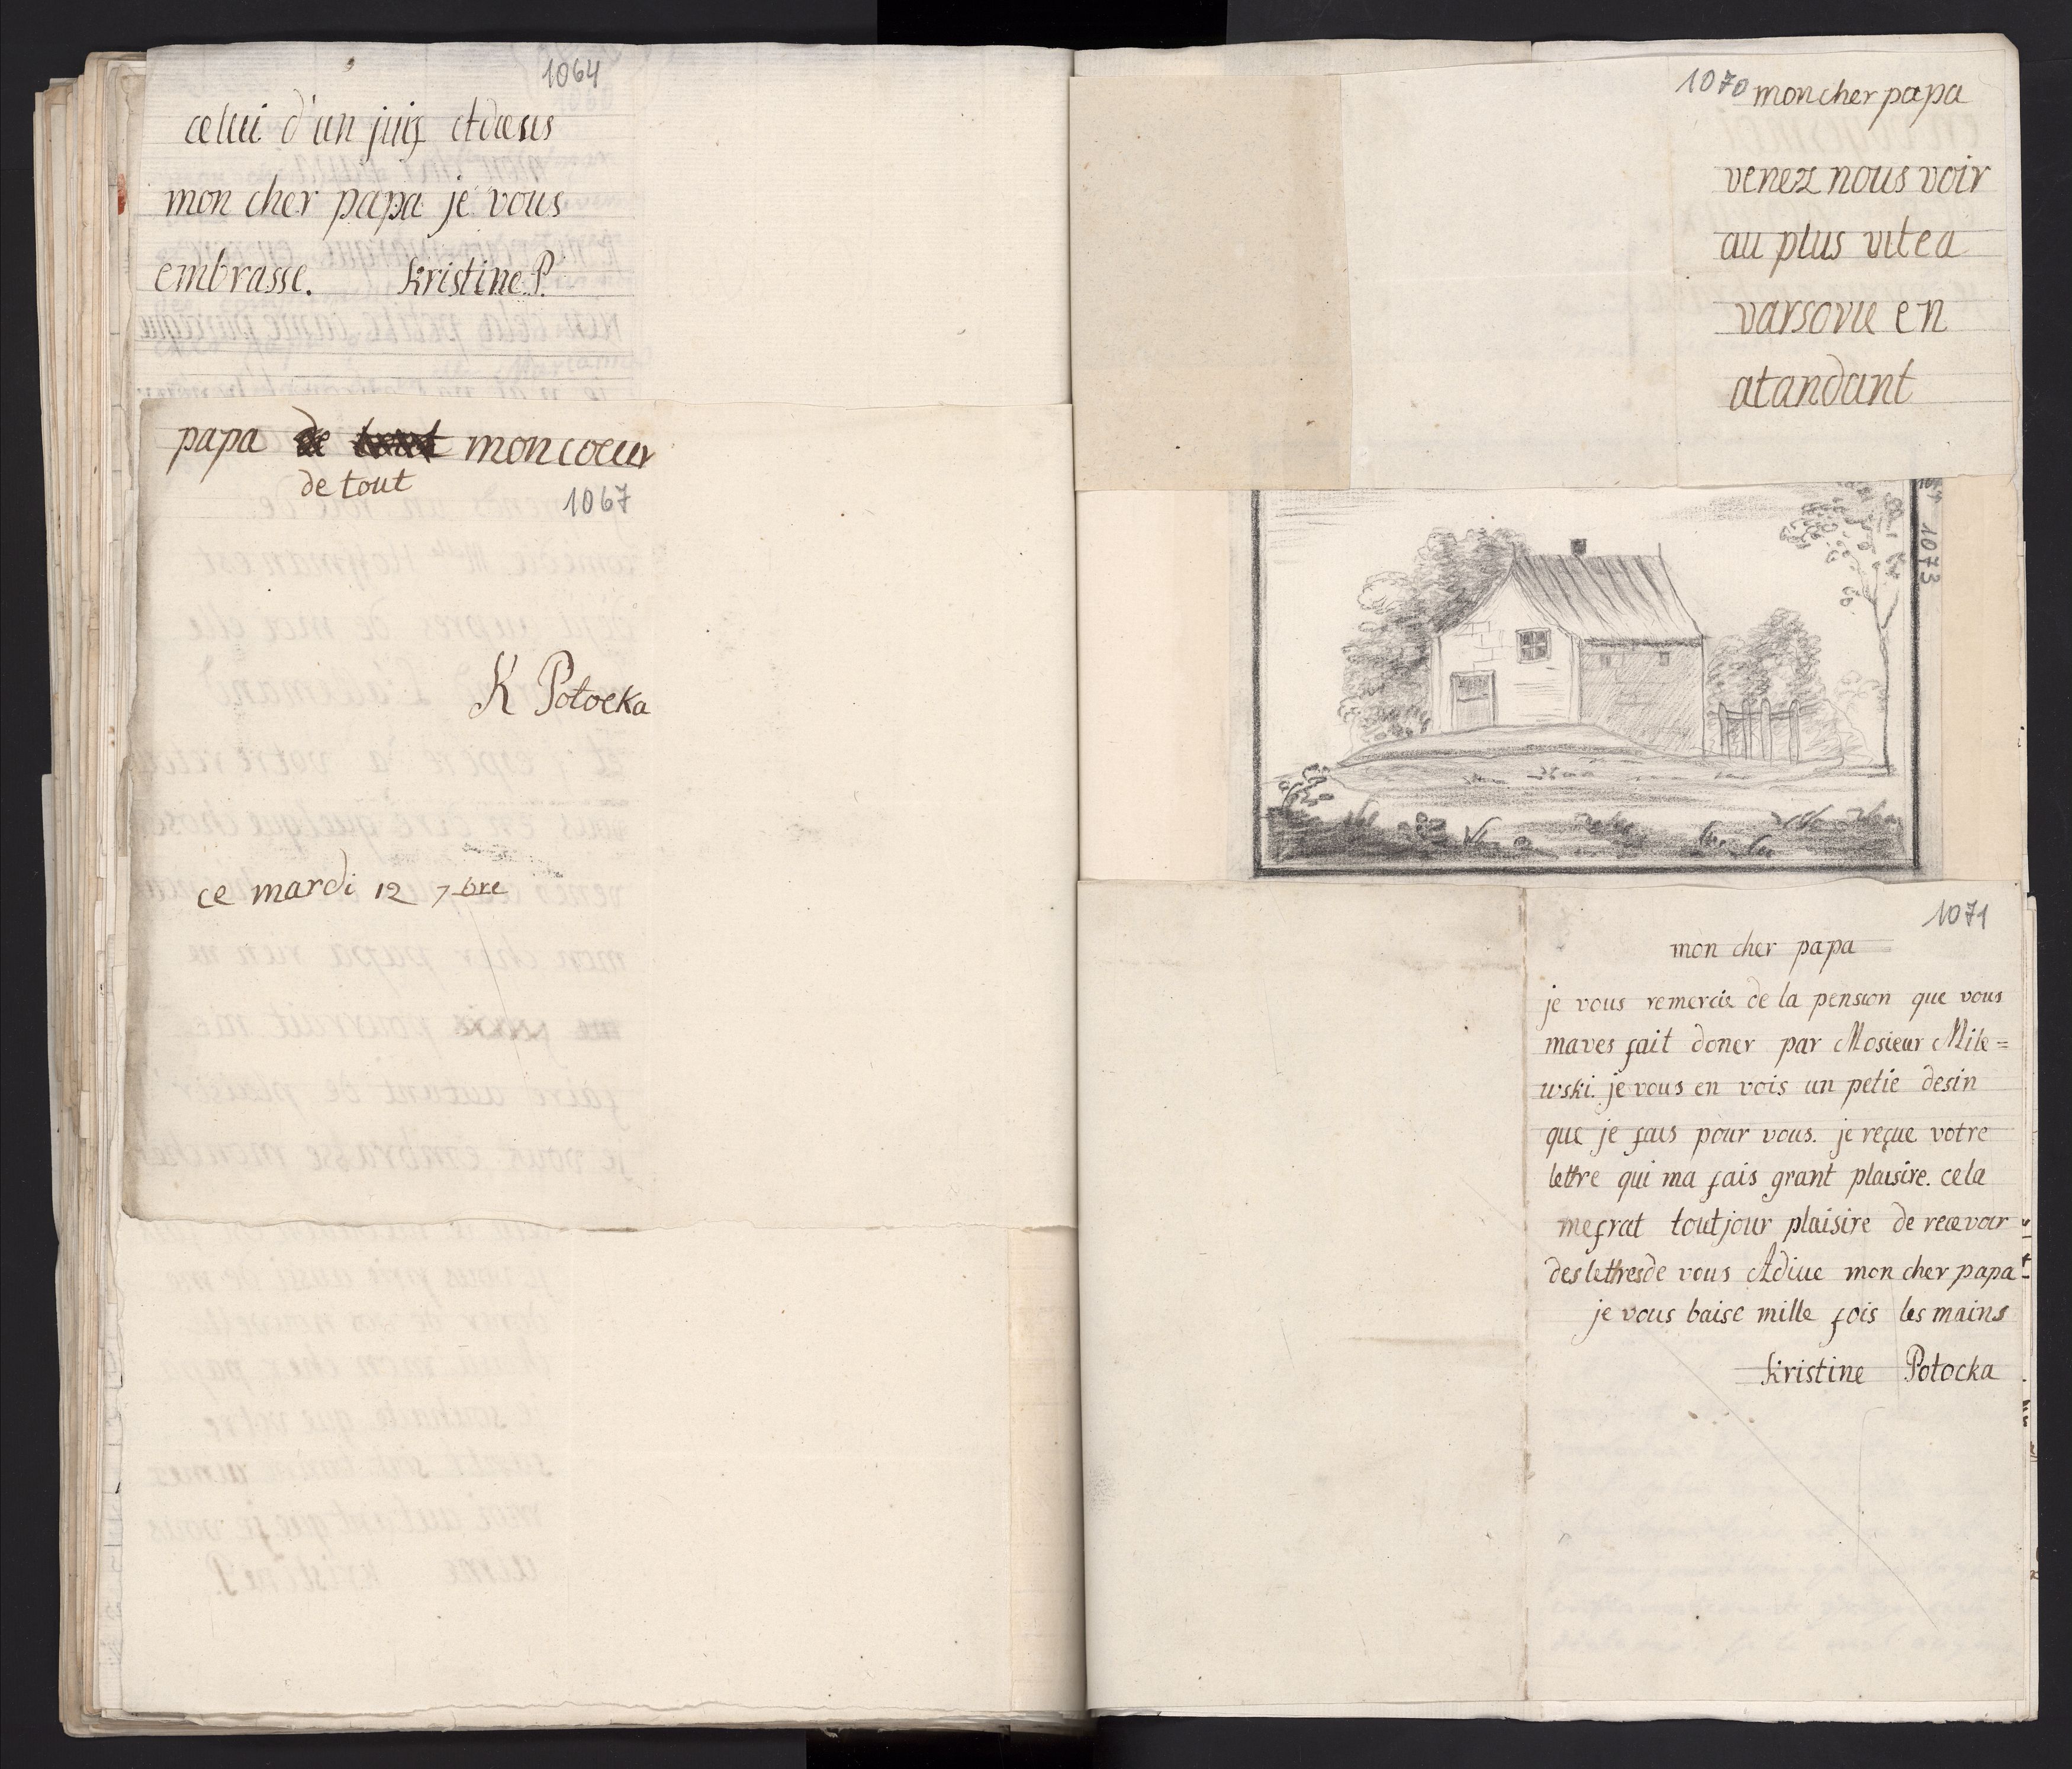 1064
celui d'un juif et dieus
mon cher papa je vous
embrasse. kristine P.
papa de tout mon coeur
de tout
1067
K Potocka
ce mardi 12 7bre
1070 mon cher papa
venez nous voir
au plus vite a
varsovie en
atandant
1073
1071
mon cher papa
je vous remercie de la pension que vous
maves fait doner par Mosieur Mile=
wski. je vous en vois un petie desin
que je fais pour vous. je reçue votre
lettre qui ma fais grant plaisire. cela
mefrat toutjour plaisire de recevoir
des lettres de vous Adiue mon cher papa
je vous baise mille fois les mains
Kristine Potocka